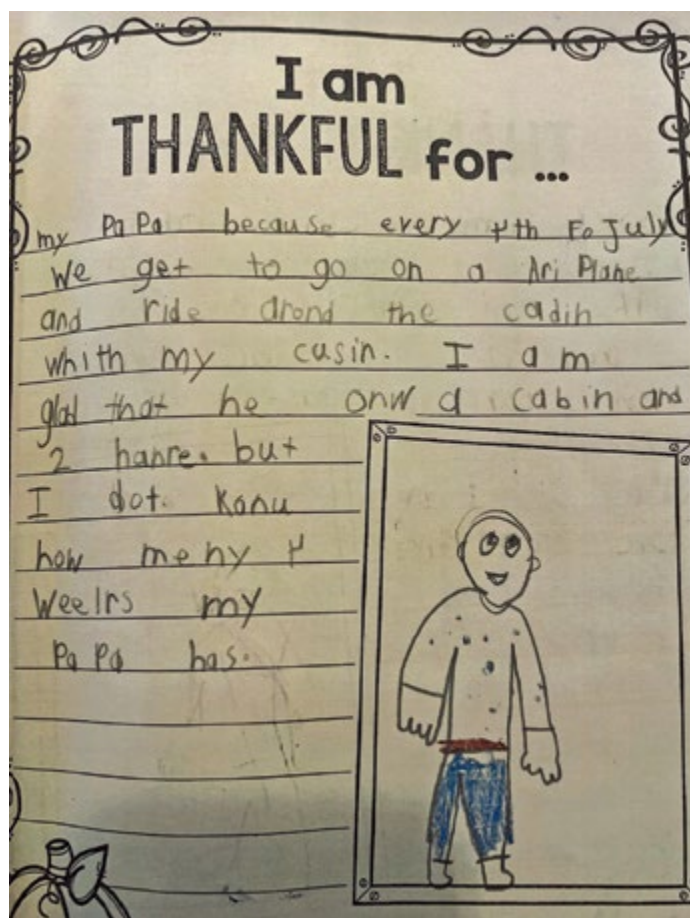 I am
THANKFUL for ...
my PaPa because every 4th Fo July
We get to go on a Ari Plane
and ride arond the cadin
whith my cusin. I am
glad that he onw a cabin and
2 hanre. but
I dot. Konu
how meny 4
Weelrs my
PaPa has.